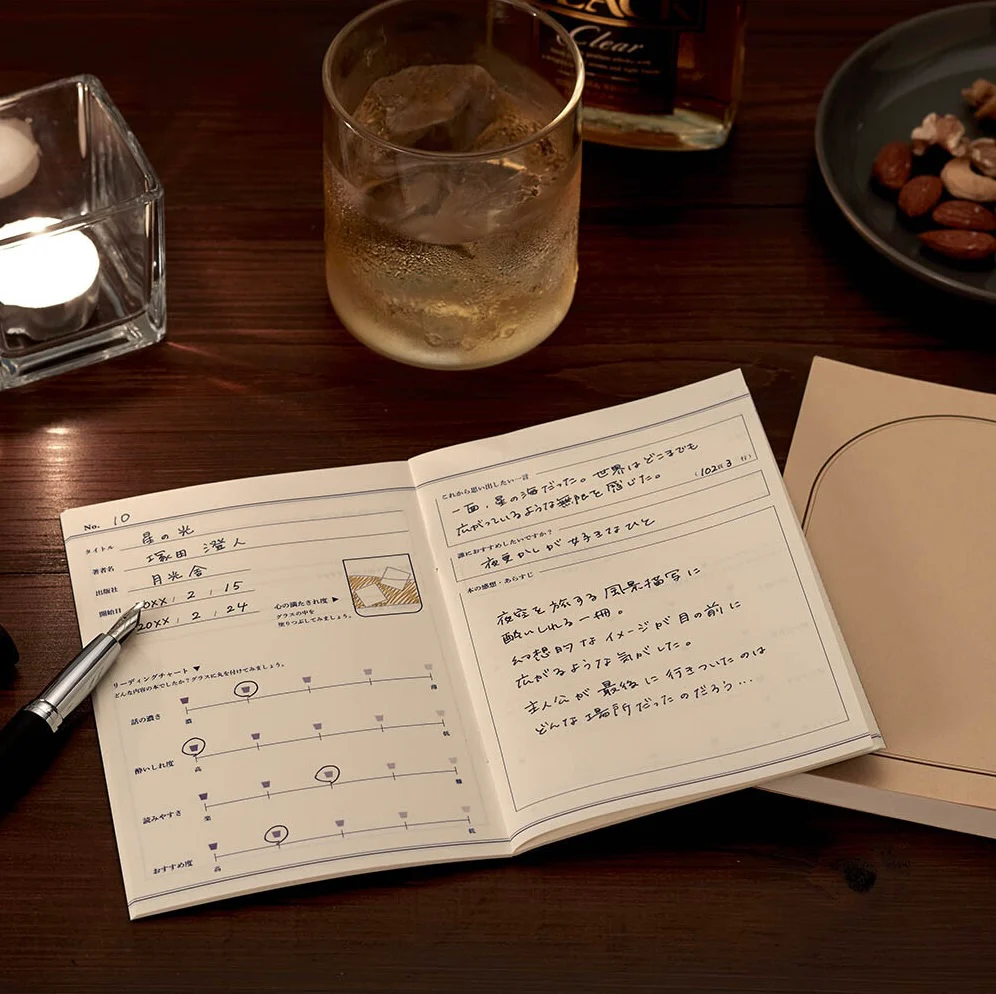 LACK
Clear
No. 10
タイトル 星の光
著者名 塚田 澄人
出版社 月光舎
開始日 20XX / 2 / 15
20XX / 2 / 24
心の満たされ度 ▶
グラスの中を
塗りつぶしてみましょう。
リーディングチャート ▼
どんな内容の本でしたか?グラスに丸を付けてみましょう。
話の濃さ
濃 薄
酔いしれ度
高 低
読みやすさ
楽 難
おすすめ度
高 低
これから思い出したい一言
一面、星の海だった。世界はどこまでも
広がっているような無限を感じた。
(102頁 3 行)
誰におすすめしたいですか?
夜更かしが好きなひと
本の感想・あらすじ
夜空を旅する風景描写に
酔いしれる一冊。
幻想的なイメージが目の前に
広がるような気がした。
主人公が最後に行きついたのは
どんな場所だったのだろう…